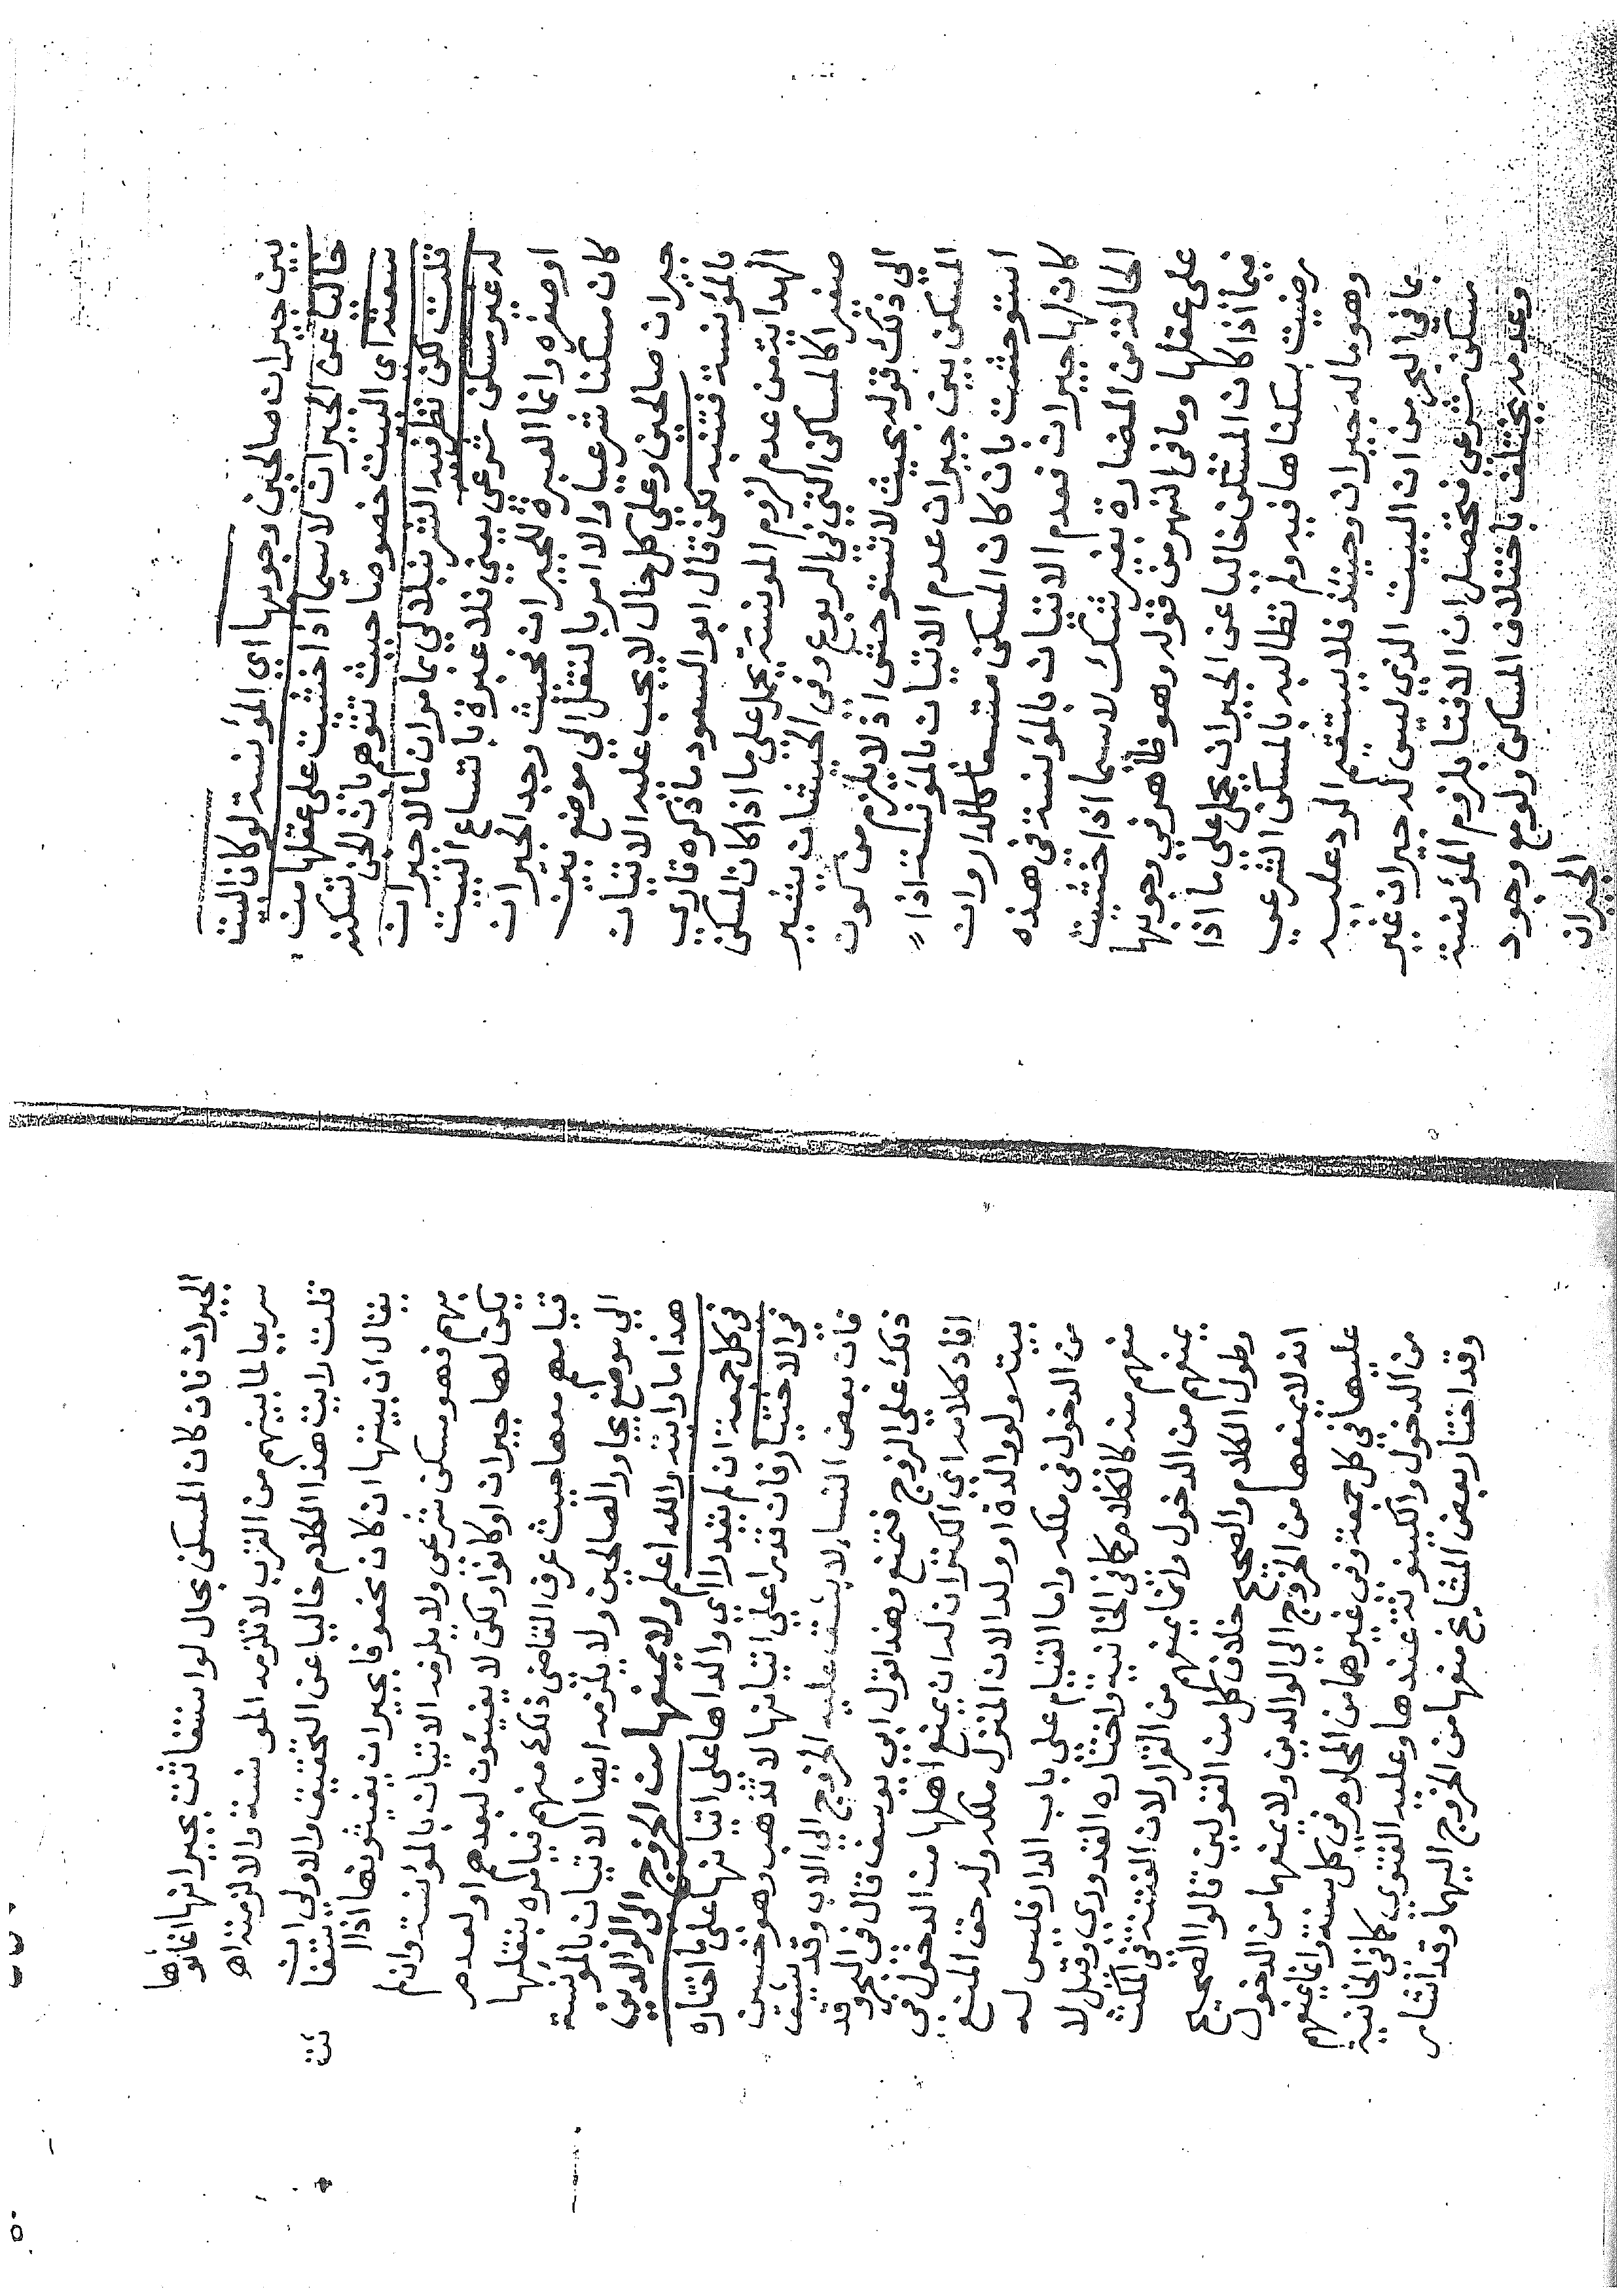 بين جيران صالحين وجوبها اي المؤنسة لو كان البيت
خاليا عن الجيران لا سيما اذا خشيت على عقلها من
سعته اي البيت خصوصا حيث تتوهم بان الجن تسكنه
قلت لكن نظر فيه الشرنبلالي بما مر ان ما لا جيران
له غير مسكن شرعي يعني فلا عبرة باتساع البيت
او صغره وانما العبرة للجيران فحيث وجد الجيران
كان مسكنا شرعيا والا امر بالنقل الي موضع بين
جيران صالحين وعلي كل حال لا يجب عليه الاتيان
بالمؤنسة فتنبه لكن قال ابو السعود ما ذكره قاري
الهداية من عدم لزوم المونسة يحمل علي ما اذا كان المسكن
صغيرا كالمساكن التي في الربوع وفي الحيشان يشير
الي ذلك قوله بحيث لا تستوحش اذ لا يلزم من كون
المسكن بين جيران عدم الاتيان بالمؤنسة اذا
استوحشت بان كان المسكن متسعا كالدار وان
كان لها جيران فعدم الاتيان بالمؤنسة في هذه
الحالة من المضارة بغير شك لا سيما اذا خشيت
على عقلها وما في النهر من قوله وهو ظاهر في وجوبها
فيما اذا كان المسكن خاليا عن الجيران يحمل علي ما اذا
رضيت بسكناها فيه ولم تطالبه بالمسكن الشرعي
وهو ما له جيران وحينئذ فلا يستقيم الرد عليه
بما في البحر من ان البيت الذي ليس له جيران غير
مسكن شرعي فتحصل ان الافتا بلزوم المؤنسة
وعدمه يختلف باختلاف المساكن ولو مع وجود
الجيران
الجيران فان كان المسكن بحال لو استغاثت بجيرانها اغاثوها
سريعا لما بينهم من القرب لا تلزمه المونسة والا لزمته اهـ
قلت رايت هذا الكلام خاليا عن التحقيق والاولى ان
يقال ان بيتها ان كان محفوفا بجيران يغيثونها اذا استغا
ثت
بهم فهو مسكن شرعي ولا يلزمه الاتيان بالمؤنسة وان لم
يكن لها جيران او كانوا ولكن لا يغيثون لبعدهم او لعدم
قيامهم معها حيث عرف القاضي ذلك منهم فيامره بنقلها
الي موضع يجاور الصالحين ولا يلزمه ايضا الاتيان بالمؤنسة
هذا ما رايته والله اعلم ولا يمنعها من الخروج الى الوالدين
في كل جمعة ان لم يقدرا اي والداها على اتيانها على ما اختاره
في الاختيار فان قدرا علي اتيانها لا تذهب وهو حسن
فان بعض النساء لا يشق عليه الخروج الي الاب وقد يشق
ذلك علي الزوج فتمنع وهذا قول ابي يوسف قال في البحر وقد
افاد كلامه اي الكنز ان له ان يمنع اهلها من الدخول في
بيته ولو والدة او ولدا لان المنزل ملكه وله حق المنع
من الدخول في ملكه واما القيام على باب الدار فليس له
منعهم منه كالكلام كما في الخانية واختاره القدوري وقيل لا
يمنعهم من الدخول وانما يمنعهم من القرار لان الفتنة في المكث
وطول الكلام والصحيح خلاف كل من القولين قالوا الصحيح
انه لا يمنعها من الخروج الى الوالدين ولا يمنعهما من الدخول
عليها في كل جمعة وفي غيرهما من المحارم في كل سنة وانما يمنعهم
من الدخول والكينونة عندها وعليه الفتوي كما في الخانية
وقد اختار بعض المشايخ منعها من الخروج اليهما وقد اشار